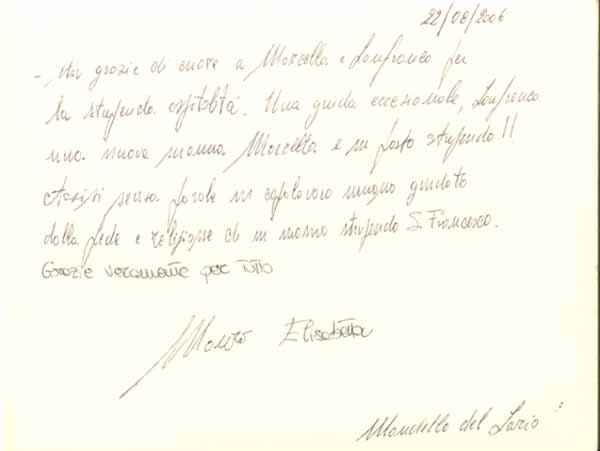 22/08/2006
- Un grazie di cuore a Marcella e Lanfranco per
la stupenda ospitalità. Una guida eccezionale, Lanfranco
una nuova mamma Marcella e un posto stupendo!!
Assisi senza parole un capolavoro umano guidato
dalla fede e religione di un uomo stupendo S. Francesco.
Grazie veramente per tutto
Elisabetta
Mandello del Lario